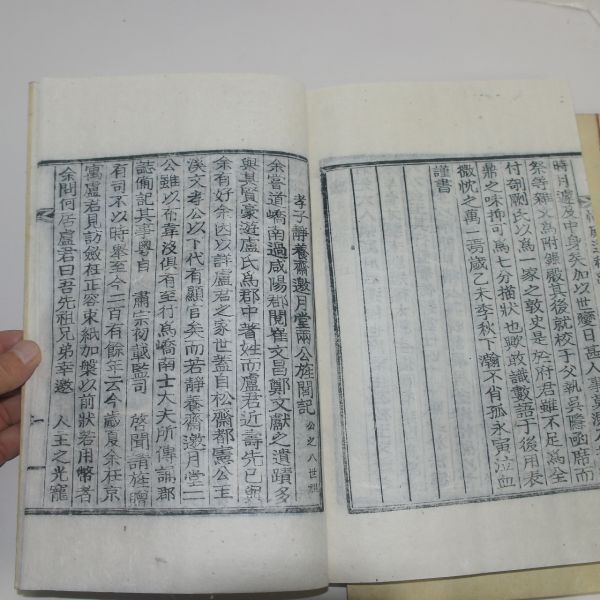 時月遷及中身矣加以世變日甚人事莫測
祭等雜文爲附錄厥其後就校于父執吳隱凾階而
付剞劂氏以爲一家之敦史是於府君雖不足爲全
鼎之味抑可爲七分描狀也歟敢識數語于後用表
微忱之萬一焉歲乙未李秋下瀚不肖孤永寅泣血
謹書
孝子靜養齋邀月堂兩公旌閭記 公之八世祖
余嘗道嶠南過咸陽郡閱崔文昌鄭文獻之遺蹟多
與其賢豪遊盧氏爲郡中著姓而盧君近壽先已與
余有好余因以詳盧君之家世蓋自松齋都憲公玉
溪文孝公以下代有顯官矣而若靜養齋邀月堂二
公雖以布韋沒俱有至行爲嶠南士大夫所傳誦郡
誌備記其事粤自 肅宗初載監司 啓聞請旌贈
有司不以時舉至今二百有餘年云今歲夏余在京
寓盧君見訪斂衽正容束紙加槃以前狀若用幣者
余問何居盧君曰吾先祖兄弟幸邀 人王之光寵